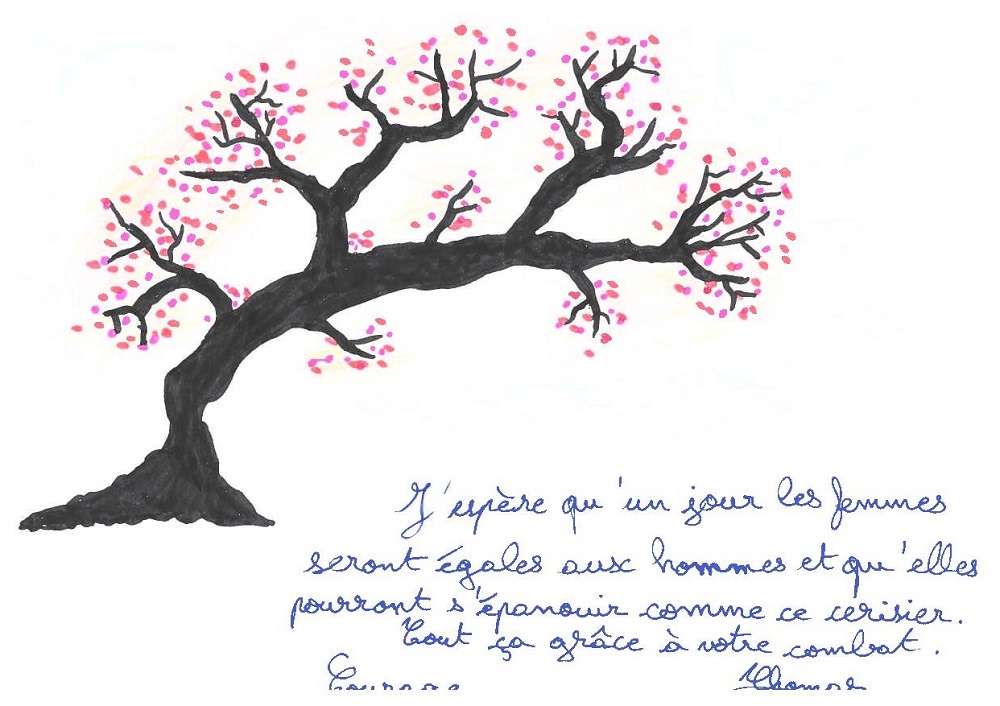 J'espère qu'un jour les femmes
seront égales aux hommes et qu'elles
pourront s'épanouir comme ce cerisier.
Tout ça grâce à votre combat.
Courage Thomas